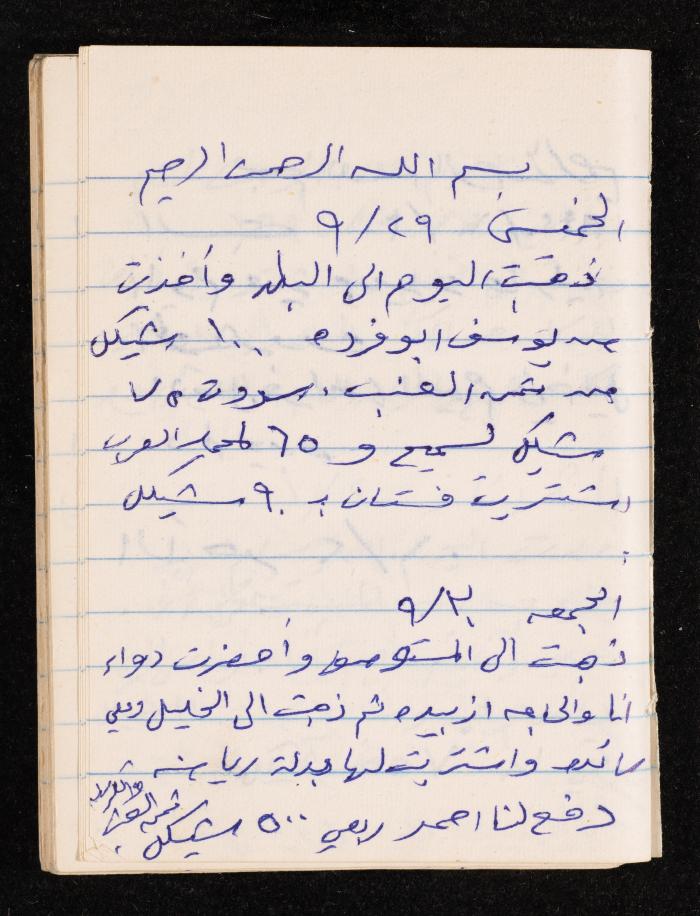 بسم الله الرحمن الرحيم
الخميس ٢٩/٩
ذهبت اليوم الى البلد وأخذت
من يوسف ابو فرده ١٠٠ شيكل
من ثمن العنب
شيكل لسميح و ٦٥ العرب
اشتريت فستان بـ ٩٠ شيكل
الجمعه ٣٠/٩
ذهبت الى المستوصف وأحضرت دواء
انا والحاجه ازبيده ثم ذهبت الى الخليل ومعي
رائده واشتريت لها بدلة رياضه
دفع لنا احمد ربعي ٥٠٠ شيكل
ثمن العنب